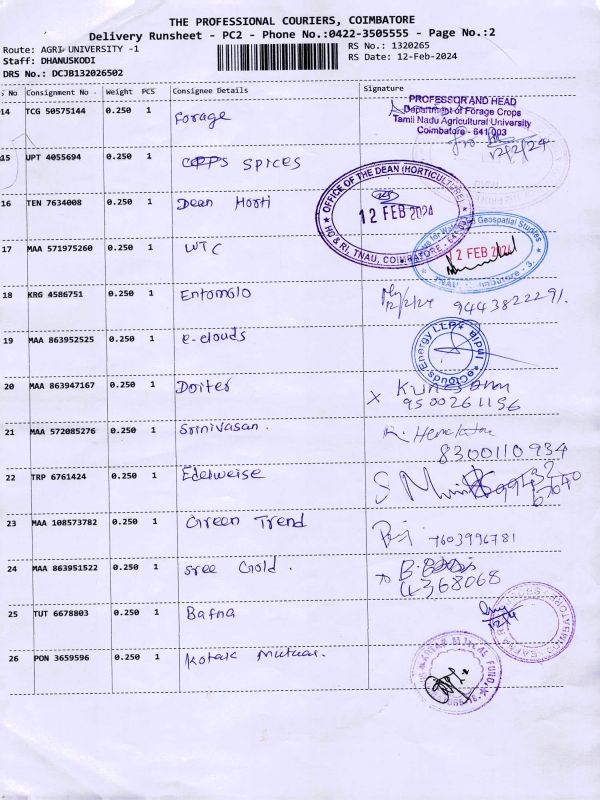 THE PROFESSIONAL COURIERS, COIMBATORE
Delivery Runsheet - PC2 - Phone No.:0422-3505555 - Page No.:2
Route: AGRI UNIVERSITY -1
RS No.: 1320265
Staff: DHANUSKODI
RS Date: 12-Feb-2024
DRS No.: DCJB132026502
s No Consignment No Weight PCS Consignee Details Signature
14 TCG 50575144 0.250 1 Forage
PROFESSOR AND HEAD
Department of Forage Crops
Tamil Nadu Agricultural University
Coimbatore - 641 003
12/2/24
15 UPT 4055694 0.250 1 SPICES
16 TEN 7634008 0.250 1 Dean Horti
OFFICE OF THE DEAN (HORTICULTURE)
12 FEB 2024
HC & RI, TNAU, COIMBATORE - 641
17 MAA 571975260 0.250 1 WTC
Geospatial Studies
12 FEB 2024
TNAU, Coimbatore - 3.
18 KRG 4586751 0.250 1 Entomolo
12/2/24 9443822291.
19 MAA 863952525 0.250 1 e-clouds
eClouds Energy LLP
20 MAA 863947167 0.250 1 Doiter
X
9500261156
21 MAA 572085276 0.250 1 Srinivasan.
8300110934
22 TRP 6761424 0.250 1 Edelweise
23 MAA 108573782 0.250 1 Green Trend
7603996781
24 MAA 863951522 0.250 1 Sree Gold.
4368068
25 TUT 6678803 0.250 1 Bafna
26 PON 3659596 0.250 1 Kotak Mutual.